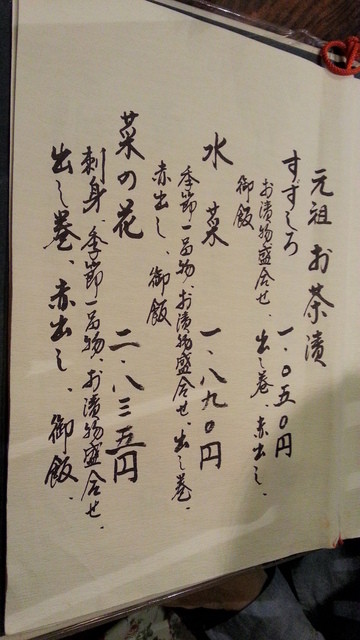 元祖 お茶漬
すずしろ 一、〇五〇円
お漬物盛合せ、出し巻、赤出し、
御飯
水菜 一、八九〇円
季節一品物、お漬物盛合せ、出し巻、
赤出し、御飯
菜の花 二、八三五円
刺身、季節一品物、お漬物盛合せ、
出し巻、赤出し、御飯、